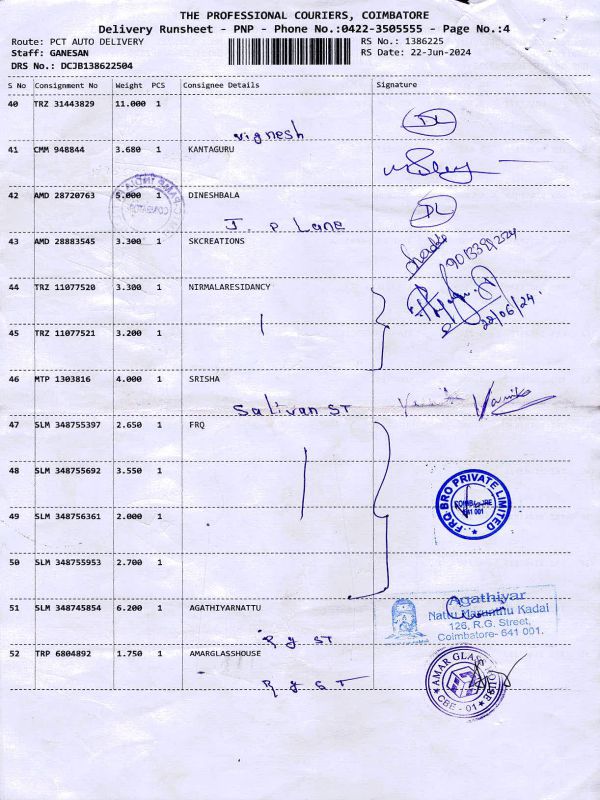 THE PROFESSIONAL COURIERS, COIMBATORE
Delivery Runsheet - PNP - Phone No.:0422-3505555 - Page No.:4
Route: PCT AUTO DELIVERY RS No.: 1386225
Staff: GANESAN RS Date: 22-Jun-2024
DRS No.: DCJB138622504
S No Consignment No Weight PCS Consignee Details Signature
40 TRZ 31443829 11.000 1 DL
vignesh
41 CMM 948844 3.680 1 KANTAGURU
42 AMD 28720763 5.000 1 DINESHBALA DL
J. P Lane
43 AMD 28883545 3.300 1 SKCREATIONS
44 TRZ 11077520 3.300 1 NIRMALARESIDANCY
22/06/24.
45 TRZ 11077521 3.200 1
46 MTP 1303816 4.000 1 SRISHA
Salivan ST
47 SLM 348755397 2.650 1 FRQ
48 SLM 348755692 3.550 1
FRQ BRO PRIVATE LIMITED
COIMBATORE
641 001
49 SLM 348756361 2.000 1
50 SLM 348755953 2.700 1
51 SLM 348745854 6.200 1 AGATHIYARNATTU
Agathiyar
Nattu Marunthu Kadai
126, R.G. Street,
Coimbatore- 641 001.
R G ST
52 TRP 6804892 1.750 1 AMARGLASSHOUSE
AMAR GLASS HOUSE
CBE - 01
R G S T